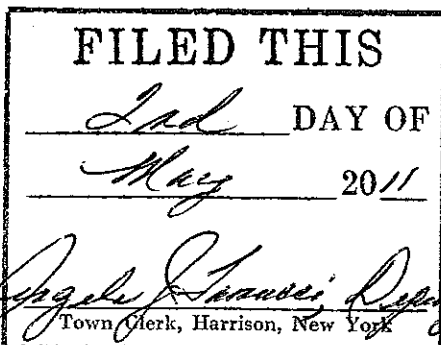 FILED THIS
2nd DAY OF
May 2011
Angelo J.
Town Clerk, Harrison, New York